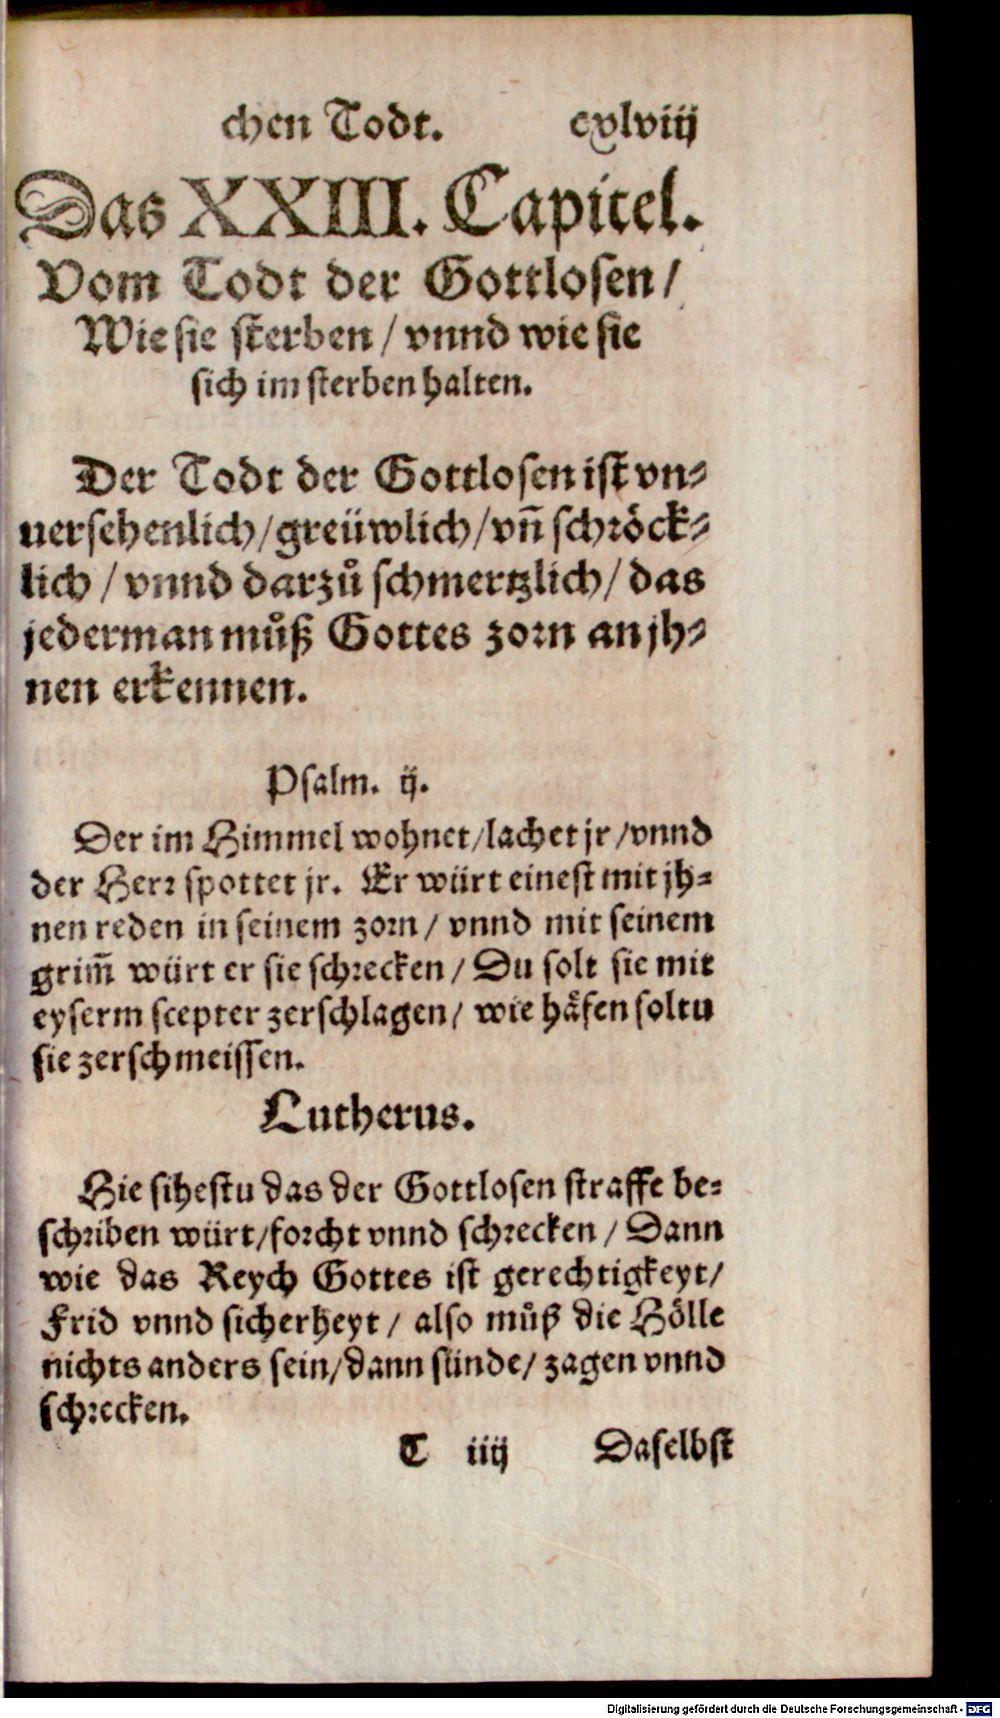 chen Todt. cxlviij
Das XXIII. Capitel.
Vom Todt der Gottlosen/
Wie sie sterben/ vnnd wie sie
sich im sterben halten.
Der Todt der Gottlosen ist vn⸗
uersehenlich/ greüwlich/ vn̄ schröck⸗
lich/ vnnd darzuͦ schmertzlich/ das
jederman muͦß Gottes zorn an jh⸗
nen erkennen.
Psalm. ij.
Der im Himmel wohnet/ lachet jr/ vnnd
der Herr spottet jr. Er würt einest mit jh⸗
nen reden in seinem zorn/ vnnd mit seinem
grim̄ würt er sie schrecken/ Du solt sie mit
eyserm scepter zerschlagen/ wie haͤfen soltu
sie zerschmeissen.
Lutherus.
Hie sihestu das der Gottlosen straffe be⸗
schriben würt/ forcht vnnd schrecken/ Dann
wie das Reych Gottes ist gerechtigkeyt/
Frid vnnd sicherheyt/ also muͦß die Hoͤlle
nichts anders sein/ dann sünde/ zagen vnnd
schrecken.
T iiij Daselbst
Digitalisierung gefördert durch die Deutsche Forschungsgemeinschaft - DFG